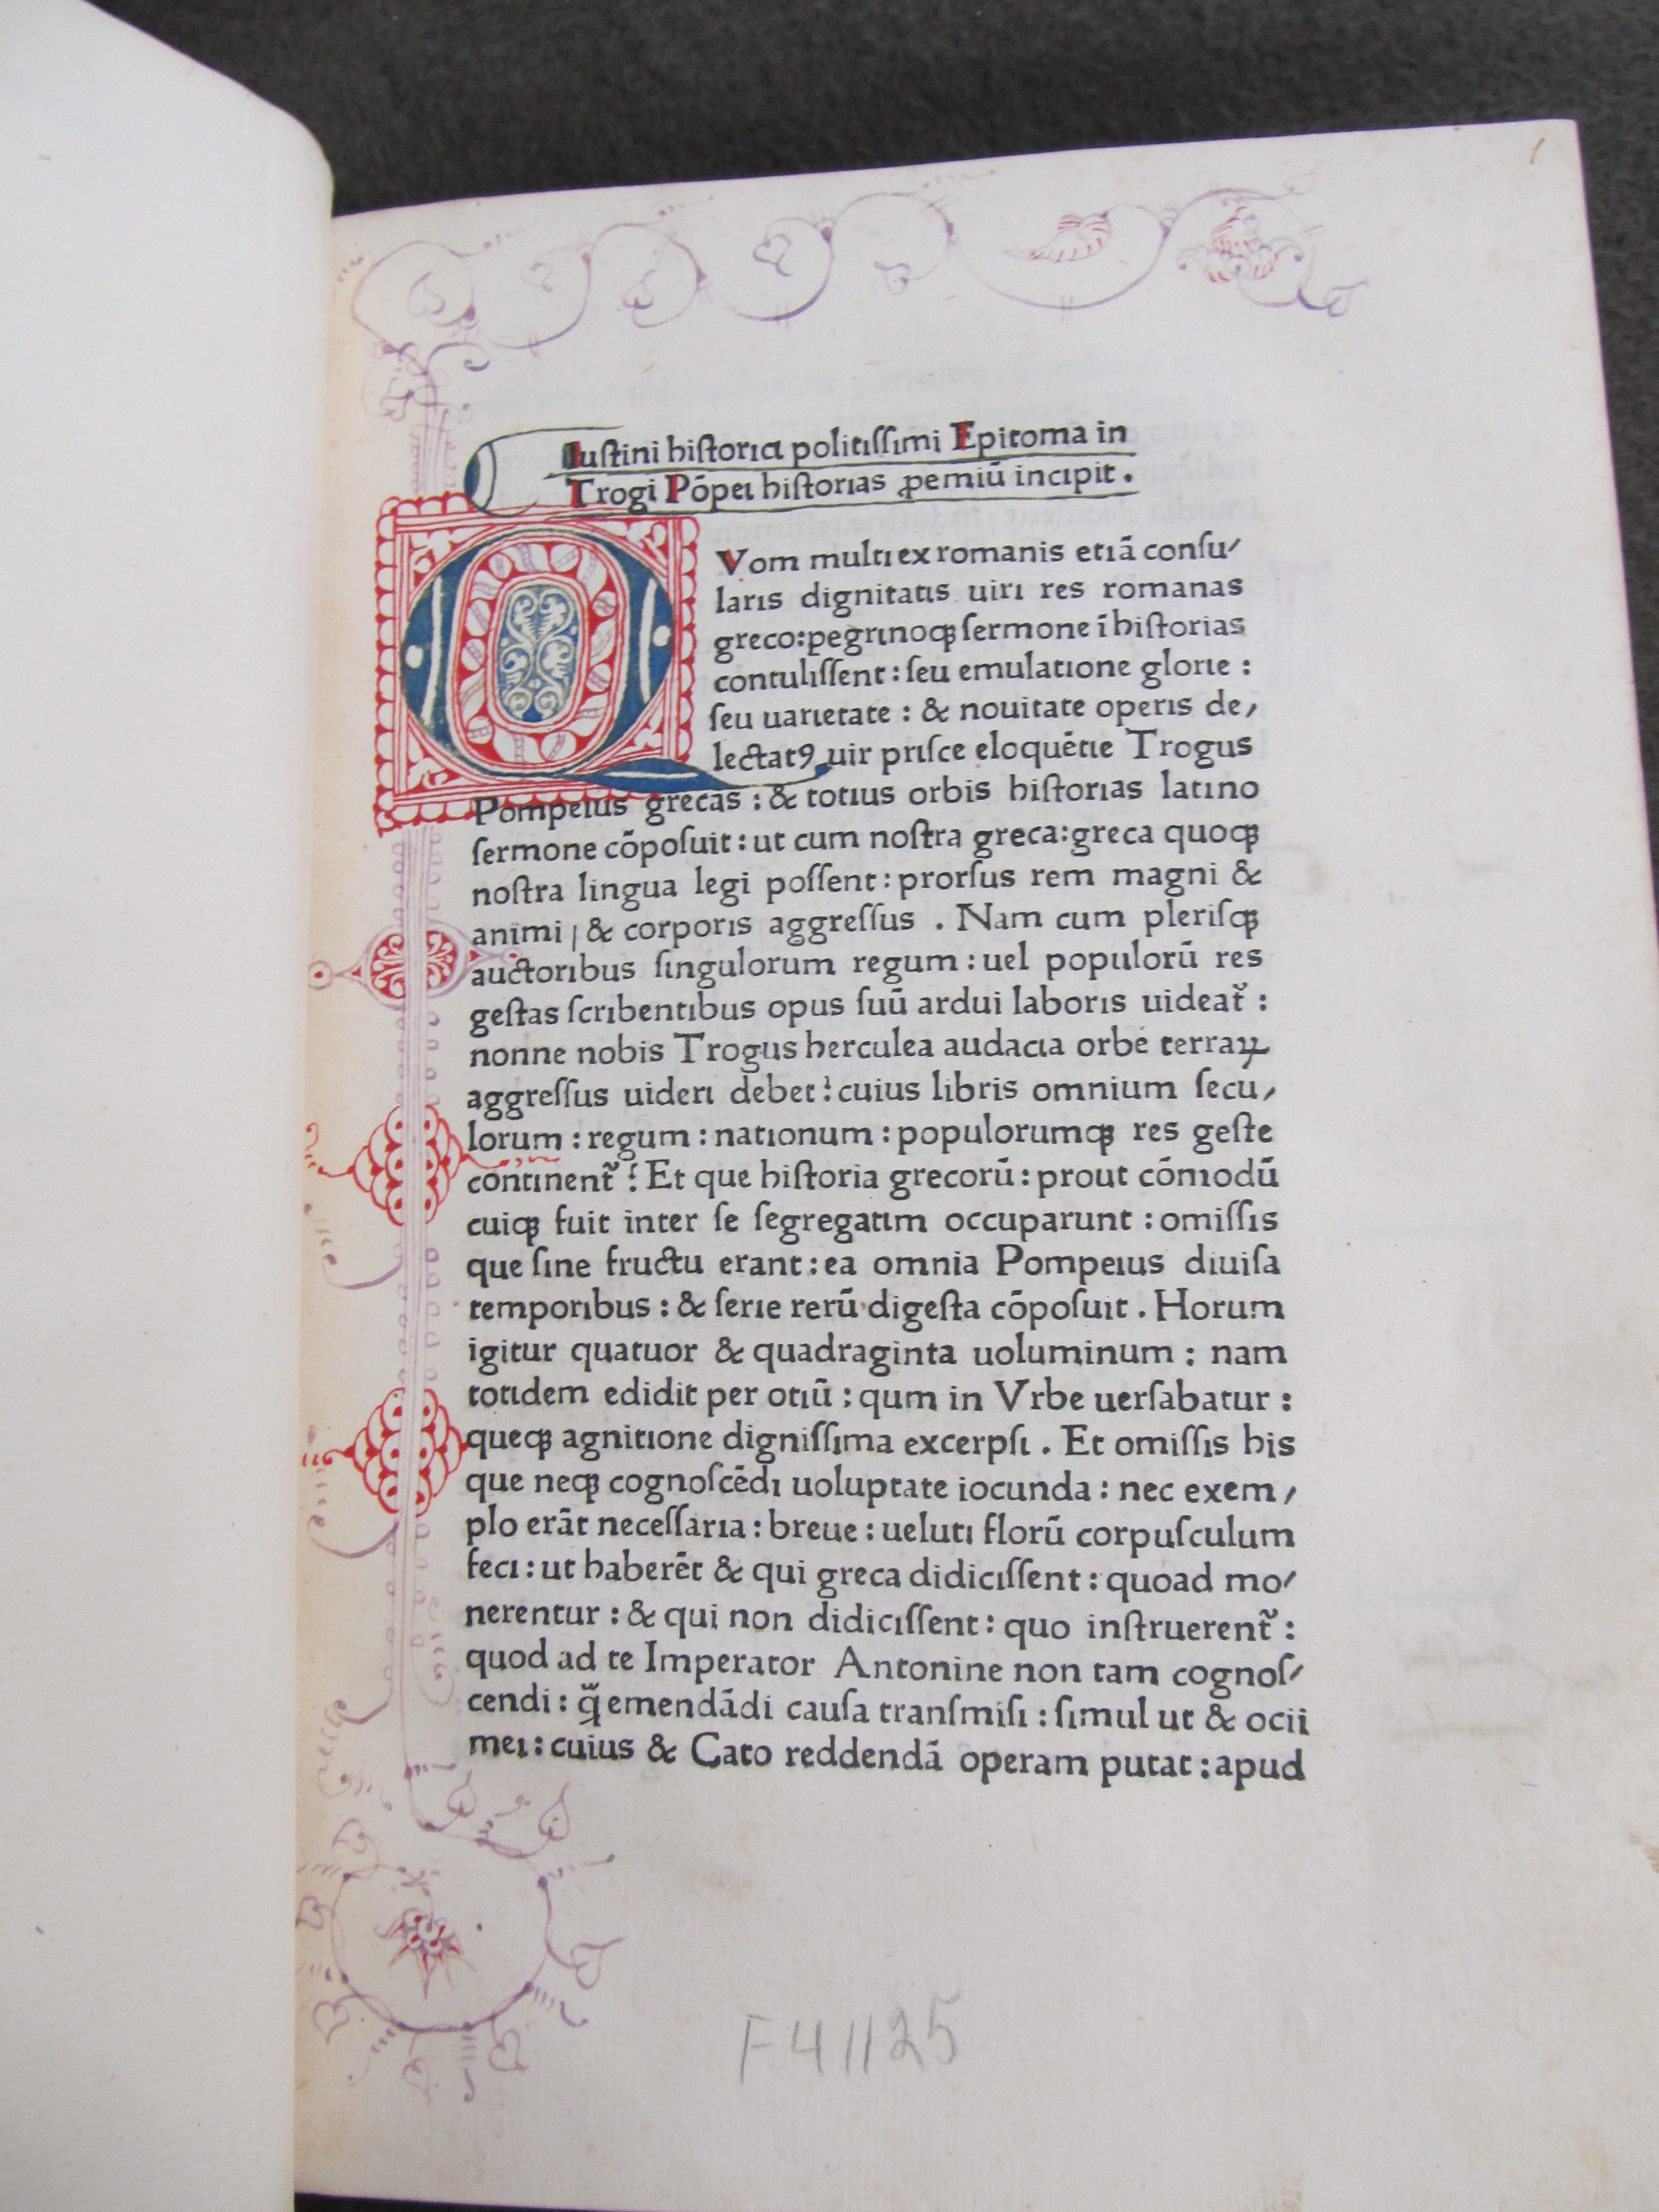 1
Iuſtini hiſtorici politiſſimi Epitoma in
Trogi Põpei hiſtorias ꝓemiũ incipit .
QVom multi ex romanis etiã conſu⸗
laris dignitatis uiri res romanas
greco:pegrinoqꝫ ſermone ĩ hiſtorias
contuliſſent : ſeu emulatione glorie :
ſeu uarietate : & nouitate operis de⸗
lectatꝰ uir priſce eloquẽtie Trogus
Pompeius grecas : & totius orbis hiſtorias latino
ſermone cõpoſuit : ut cum noſtra greca:greca quoqꝫ
noſtra lingua legi poſſent : prorſus rem magni &
animi / & corporis aggreſſus . Nam cum pleriſqꝫ
auctoribus ſingulorum regum : uel populorũ res
geſtas ſcribentibus opus ſuũ ardui laboris uideat᷑ :
nonne nobis Trogus herculea audacia orbẽ terraꝝ
aggreſſus uideri debet ? cuius libris omnium ſecu⸗
lorum : regum : nationum : populorumqꝫ res geſte
continent᷑ ? Et que hiſtoria grecorũ : prout cõmodũ
cuiqꝫ fuit inter ſe ſegregatim occuparunt : omiſſis
que ſine fructu erant : ea omnia Pompeius diuiſa
temporibus : & ſerie rerũ digeſta cõpoſuit . Horum
igitur quatuor & quadraginta uoluminum : nam
totidem edidit per otiũ : qum in Vrbe uerſabatur :
queqꝫ agnitione digniſſima excerpſi . Et omiſſis his
que neqꝫ cognoſcẽdi uoluptate iocunda : nec exem⸗
plo erãt neceſſaria : breue : ueluti florũ corpuſculum
feci : ut haberẽt & qui greca didiciſſent : quoad mo⸗
nerentur : & qui non didiciſſent : quo inſtruerent᷑ :
quod ad te Imperator Antonine non tam cognoſ⸗
cendi : q̃ emendãdi cauſa tranſmiſi : ſimul ut & ocii
mei : cuius & Cato reddendã operam putat : apud
F41125